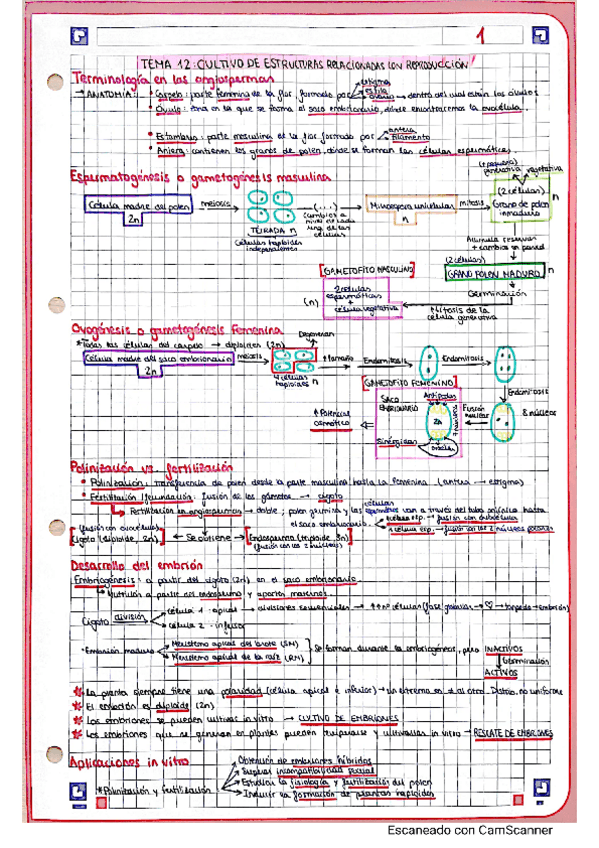 1
TEMA 12: CULTIVO DE ESTRUCTURAS RELACIONADAS CON REPRODUCCIÓN
Terminología en las angiospermas
→ ANATOMÍA: • Carpelo: parte femenina de la flor formado por estigma estilo ovario → dentro del cual están los óvulos
• Óvulo: zona en la que se forma el saco embrionario, donde encontraremos la ovocélula.
• Estambres: parte masculina de la flor formado por antera filamento
• Antera: contienen los granos de polen, donde se forman las células espermáticas
Espermatogénesis o gametogénesis masculina
(+ pequeña) generativa vegetativa
Célula madre del polen 2n
meiosis
TÉTRADA n
Células haploides independientes
(...)
(cambios a nivel de cada una de las células)
Microspora uninuclear n
mitosis
(2 células)
Grano de polen inmaduro
n
Acumula reservas + cambios en pared
(2 células)
GRANO POLEN MADURO n
Germinación
↑ Mitosis de la célula generativa
[GAMETOFITO MASCULINO]
(n)
2 células espermáticas + célula vegetativa
Ovogénesis o gametogénesis femenina
* Todas las células del carpelo → diploides (2n)
Célula madre del saco embrionario 2n
meiosis
Degeneran
4 células haploides n
↑ tamaño
Endomitosis
Endomitosis
Endomitosis
8 núcleos
Fusión nuclear
[GAMETOFITO FEMENINO]
SACO EMBRIONARIO
Antípodas
2n
7 núcleos
Sinérgidas
ovocélula
↑ Potencial osmótico
Polinización vs. fertilización
• Polinización: transferencia de polen desde la parte masculina hasta la femenina (antera → estigma)
• Fertilización/fecundación: fusión de los gametos → cigoto
Fertilización en angiospermas → doble; polen germina y las células espermáticas van a través del tubo polínico hasta
el saco embrionario
1 célula esp. → fusión con ovocélula
1 célula esp. → fusión con los 2 núcleos polares
(fusión con ovocélula)
[Cigoto (diploide, 2n)] ← Se obtiene → [Endosperma (triploide, 3n)]
(fusión con los 2 núcleos)
Desarrollo del embrión
Embriogénesis: a partir del cigoto (2n) en el saco embrionario
Nutrición a partir del endosperma y aportes maternos.
Cigoto división
célula 1 - apical → divisiones secuenciales → ↑↑ nº células (fase globular → ♡ → torpedo → embrión)
célula 2 - inferior
• Embrión maduro
Meristemo apical del brote (SM)
Meristemo apical de la raíz (RM)
Se forman durante la embriogénesis, pero INACTIVOS
↓ Germinación
ACTIVOS
* La planta siempre tiene una polaridad (célula apical e inferior) → un extremo es ≠ al otro. Distrib. no uniforme
* El embrión es diploide (2n)
* Los embriones se pueden cultivar in vitro → CULTIVO DE EMBRIONES
* Los embriones que se generan en plantas pueden traspasarse y cultivarlas in vitro → RESCATE DE EMBRIONES
Aplicaciones in vitro
* Polinización y fertilización
Obtención de embriones híbridos
Superar incompatibilidad sexual
Estudiar la fisiología y fertilización del polen
Inducir la formación de plantas haploides
Escaneado con CamScanner